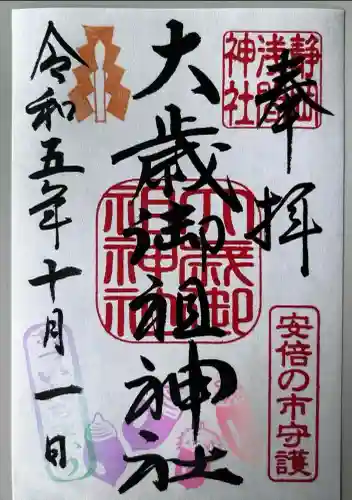 奉拝
静岡浅間神社
安倍の市守護
大歳御祖神社
大歳御祖神社
令和五年十月一日